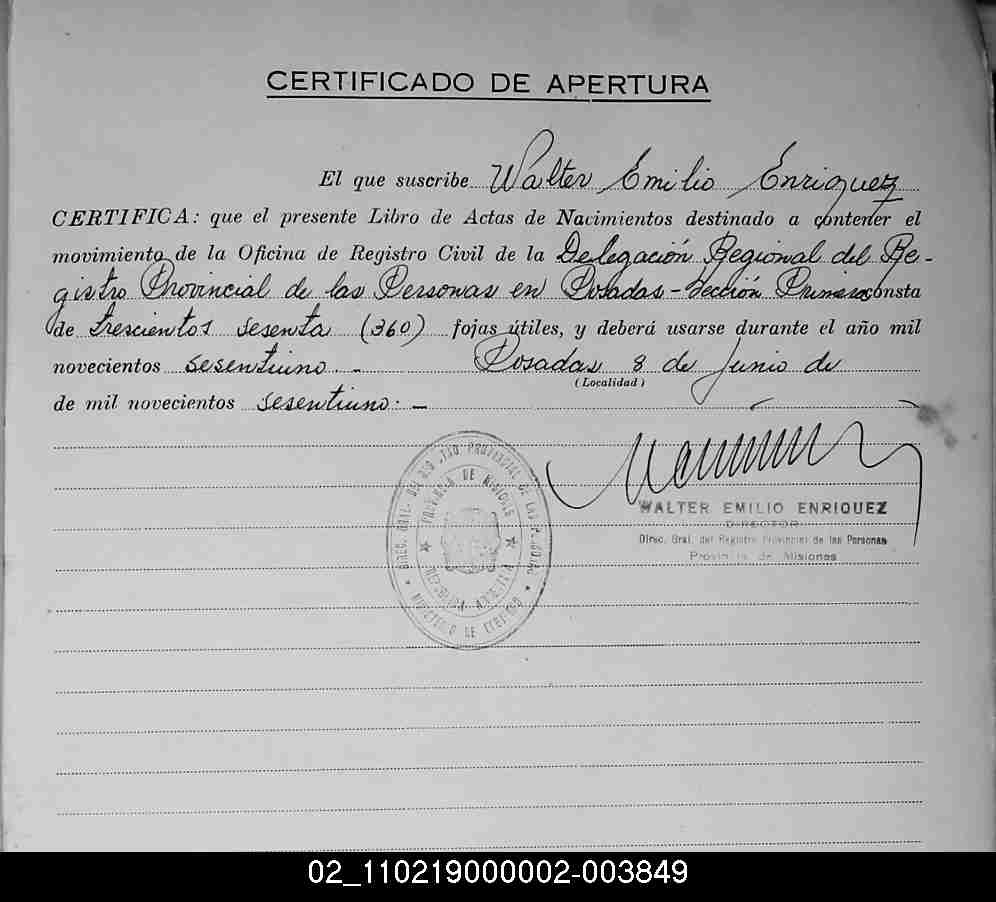 CERTIFICADO DE APERTURA
El que suscribe Walter Emilio Enriquez
CERTIFICA: que el presente Libro de Actas de Nacimientos destinado a contener el
movimiento de la Oficina de Registro Civil de la Delegación Regional del Re-
gistro Provincial de las Personas en Posadas - Sección Primera consta
de trescientos sesenta (360) fojas útiles, y deberá usarse durante el año mil
novecientos sesentiuno. - Posadas 8 de Junio de
(Localidad)
de mil novecientos sesentiuno: -
WALTER EMILIO ENRIQUEZ
DIRECTOR
Direc. Gral. del Registro Provincial de las Personas
Provincia de Misiones
PROVINCIA DE MISIONES
REPUBLICA ARGENTINA
MINISTERIO DE GOBIERNO
02_110219000002-003849